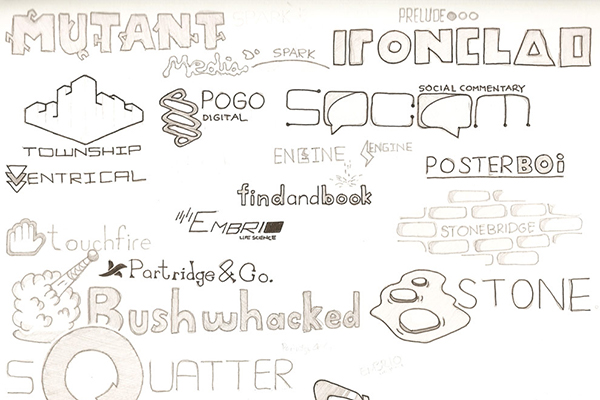 MUTANT
Media
SPARK
PRELUDE
IRONCLAD
TOWNSHIP
POGO
DIGITAL
SOCIAL COMMENTARY
SOCOM
ENGINE
ENGINE
POSTERBOi
VENTRICAL
findandbook
EMBRIO
LIFE SCIENCE
STONEBRIDGE
touchfire
Partridge & Co.
Bushwhacked
STONE
SQUATTER